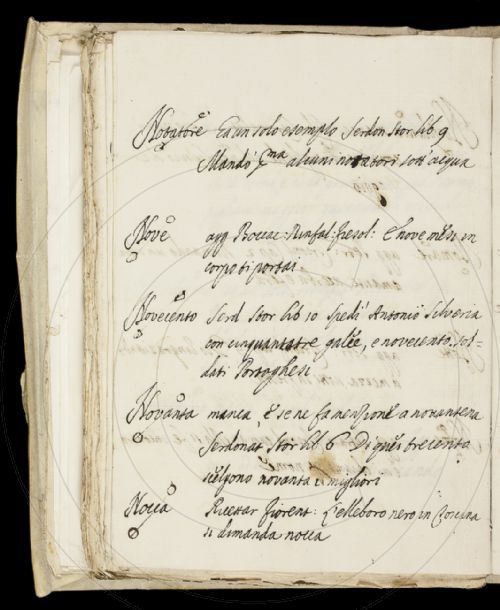 Notatore Ed un solo esemplo Serdon Stor lib 9
Mandò alcuni notatori sott' acqua
Nove agg Boccac: Ninfal: Fiesol: E nove mesi in
corpo ti portai
Novecento Serd Stor lib 10 Spedì Antonio Silveria
con cinquantatre galee, e novecento sol-
dati Portoghesi
Novanta manca, e se ne fa menzione a novantena
Serdonat Stor lib 6 Di questi trecento
scelgono novanta i migliori
Nocca Ricettar Fiorent: L'elleboro nero in Toscana
si dimanda nocca